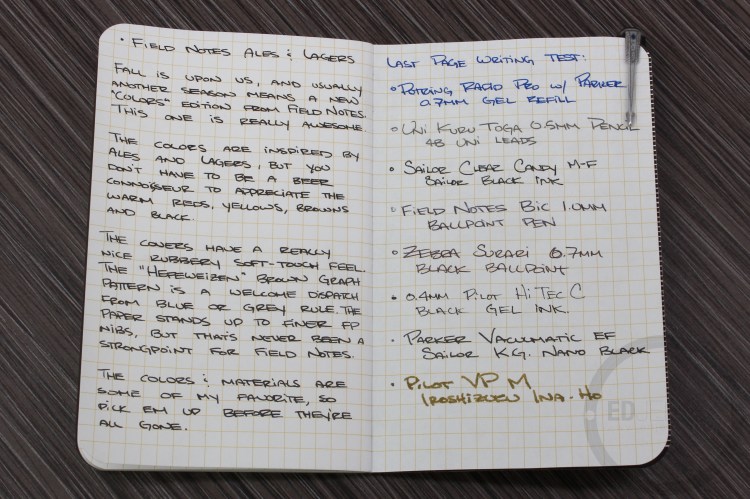 • FIELD NOTES ALES & LAGERS
FALL IS UPON US, AND USUALLY
ANOTHER SEASON MEANS A NEW
"COLORS" EDITION FROM FIELD NOTES.
THIS ONE IS REALLY AWESOME.
THE COLORS ARE INSPIRED BY
ALES AND LAGERS, BUT YOU
DON'T HAVE TO BE A BEER
CONNOISEUR TO APPRECIATE THE
WARM REDS, YELLOWS, BROWNS
AND BLACK.
THE COVERS HAVE A REALLY
NICE RUBBERY SOFT-TOUCH FEEL.
THE "HEFEWEIZEN" BROWN GRAPH
PATTERN IS A WELCOME DISPATCH
FROM BLUE OR GREY RULE. THE
PAPER STANDS UP TO FINER FP
NIBS, BUT THAT'S NEVER BEEN A
STRONGPOINT FOR FIELD NOTES.
THE COLORS & MATERIALS ARE
SOME OF MY FAVORITE, SO
PICK EM UP BEFORE THEY'RE
ALL GONE.
LAST PAGE WRITING TEST:
• ROTRING RAPID PRO W/ PARKER
0.7MM GEL REFILL
• UNI KURU TOGA 0.5MM PENCIL
4B UNI LEADS
• SAILOR CLEAR CANDY M-F
SAILOR BLACK INK
• FIELD NOTES BIC 1.0MM
BALLPOINT PEN
• ZEBRA SURARI 0.7MM
BLACK BALLPOINT
• 0.4MM PILOT HI TEC C
BLACK GEL INK.
• PARKER VACUMATIC EF
SAILOR K.G. NANO BLACK
• PILOT VP M
IROSHIZUKU INA-HO
ED